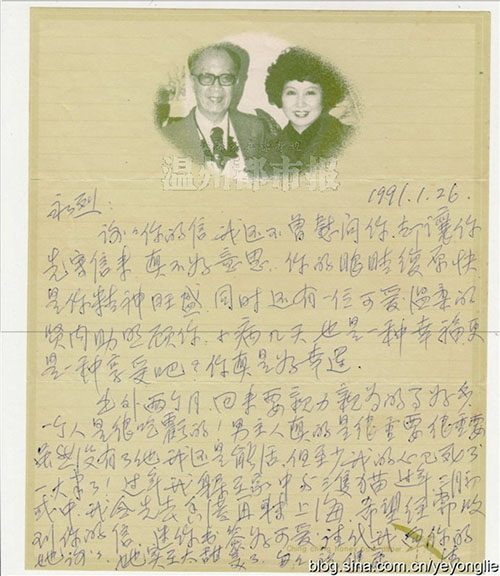 温州都市报
1991.1.26.
永烈:
谢谢你的信,我还不曾慰问你,却让你
先写信来,真不好意思。你的眼睛复原快
是你精神旺盛,同时还有一位可爱温柔的
贤内助照顾你,小病几天也是一种幸福更
是一种享受吧?你真是好幸运.
出外两个月,回来要亲力亲为的了好多
一个人是很吃亏的!男主人真的是很重要很重要
虽然没有了他我还是能活,但至少我的心已死了
一大半了!过年我
或中,我会先去香港再转上海,希望经常收
到你的信。迷你书签好可爱,请代我
她谢谢,她实在太甜蜜了。
blog.sina.com.cn/yeyonglie